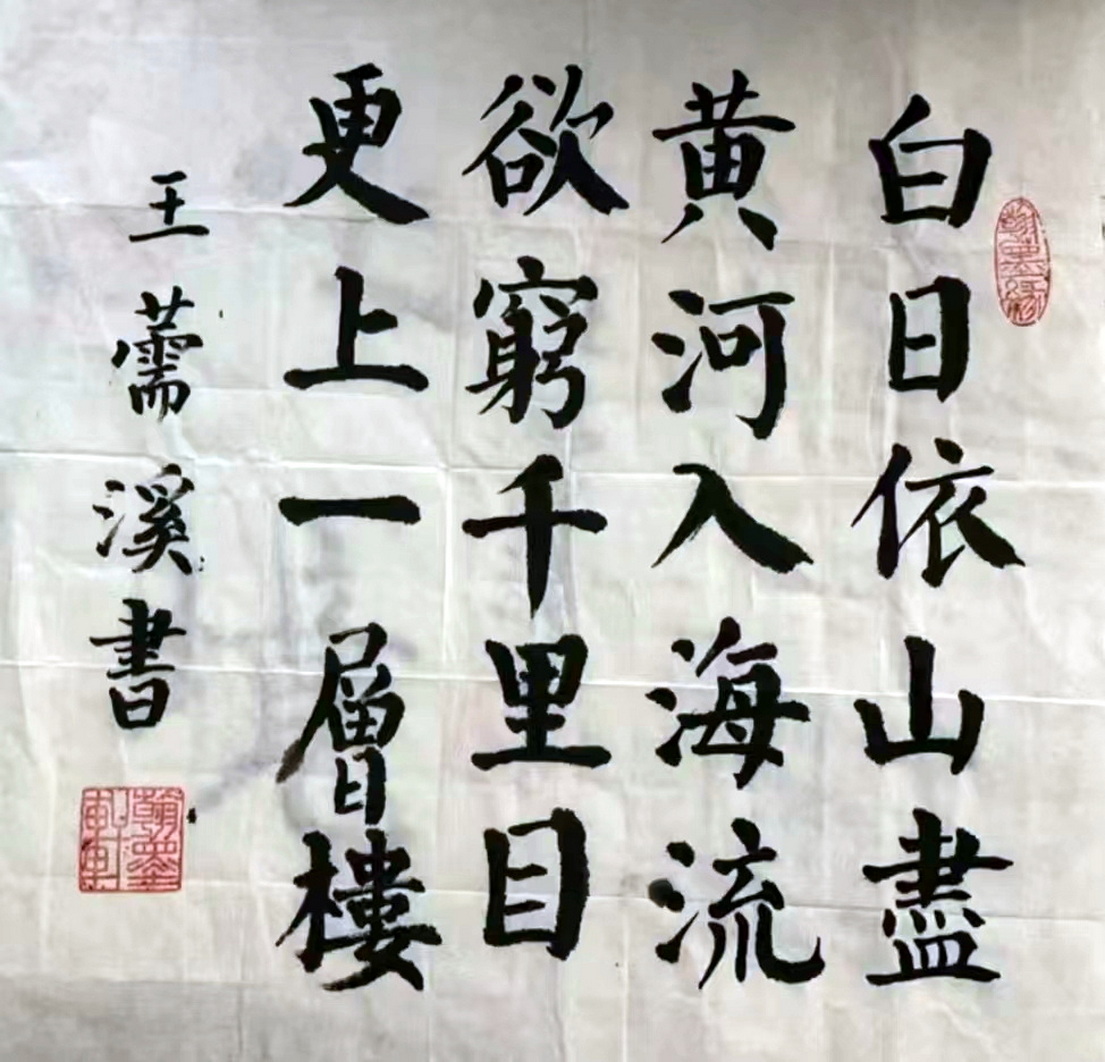 白日依山盡
黄河入海流
欲窮千里目
更上一層樓
王薷溪書